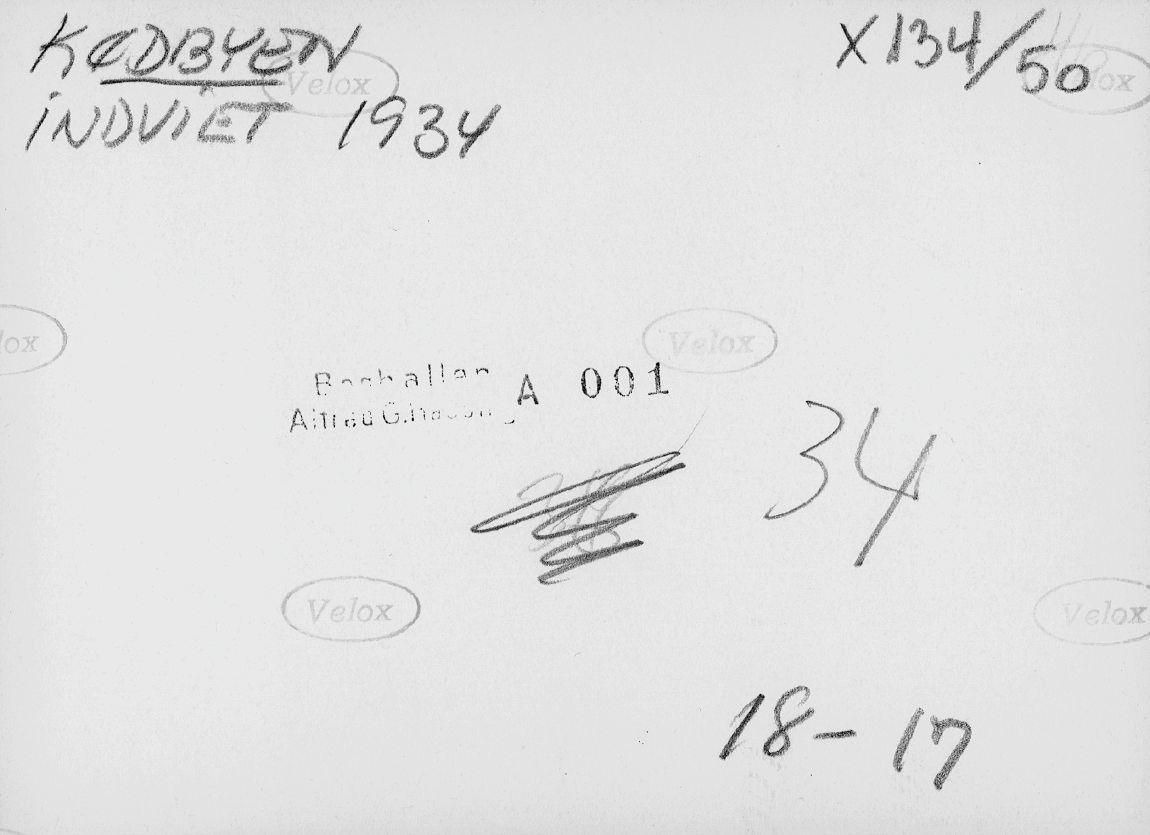 KØDBYEN
X134/50
INDVIET 1934
Velox
Velox
Velox
Boghallen
A 001
Alfred G.
34
Velox
Velox
18-17